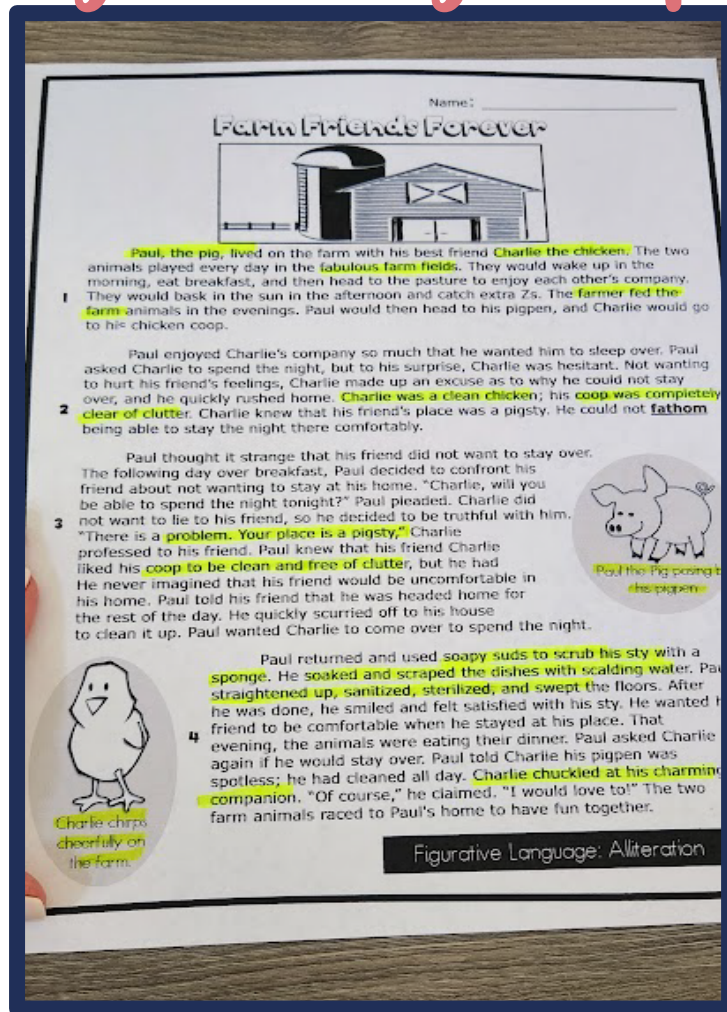 Name:
Farm Friends Forever
Paul, the pig, lived on the farm with his best friend Charlie the chicken. The two
animals played every day in the fabulous farm fields. They would wake up in the
morning, eat breakfast, and then head to the pasture to enjoy each other's company.
1 They would bask in the sun in the afternoon and catch extra Zs. The farmer fed the
farm animals in the evenings. Paul would then head to his pigpen, and Charlie would go
to his chicken coop.
Paul enjoyed Charlie's company so much that he wanted him to sleep over. Paul
asked Charlie to spend the night, but to his surprise, Charlie was hesitant. Not wanting
to hurt his friend's feelings, Charlie made up an excuse as to why he could not stay
over, and he quickly rushed home. Charlie was a clean chicken; his coop was completely
2 clear of clutter. Charlie knew that his friend's place was a pigsty. He could not fathom
being able to stay the night there comfortably.
Paul thought it strange that his friend did not want to stay over.
The following day over breakfast, Paul decided to confront his
friend about not wanting to stay at his home. "Charlie, will you
be able to spend the night tonight?" Paul pleaded. Charlie did
3 not want to lie to his friend, so he decided to be truthful with him.
"There is a problem. Your place is a pigsty," Charlie
professed to his friend. Paul knew that his friend Charlie
liked his coop to be clean and free of clutter, but he had
He never imagined that his friend would be uncomfortable in
his home. Paul told his friend that he was headed home for
the rest of the day. He quickly scurried off to his house
to clean it up. Paul wanted Charlie to come over to spend the night.
Paul the Pig posing
his pigpen
Paul returned and used soapy suds to scrub his sty with a
sponge. He soaked and scraped the dishes with scalding water.
straightened up, sanitized, sterilized, and swept the floors. After
he was done, he smiled and felt satisfied with his sty. He wanted
friend to be comfortable when he stayed at his place. That
4 evening, the animals were eating their dinner. Paul asked Charlie
again if he would stay over. Paul told Charlie his pigpen was
spotless; he had cleaned all day. Charlie chuckled at his charming
companion. "Of course," he claimed. "I would love to!" The two
farm animals raced to Paul's home to have fun together.
Charlie chirps
cheerfully on
the farm.
Figurative Language: Alliteration